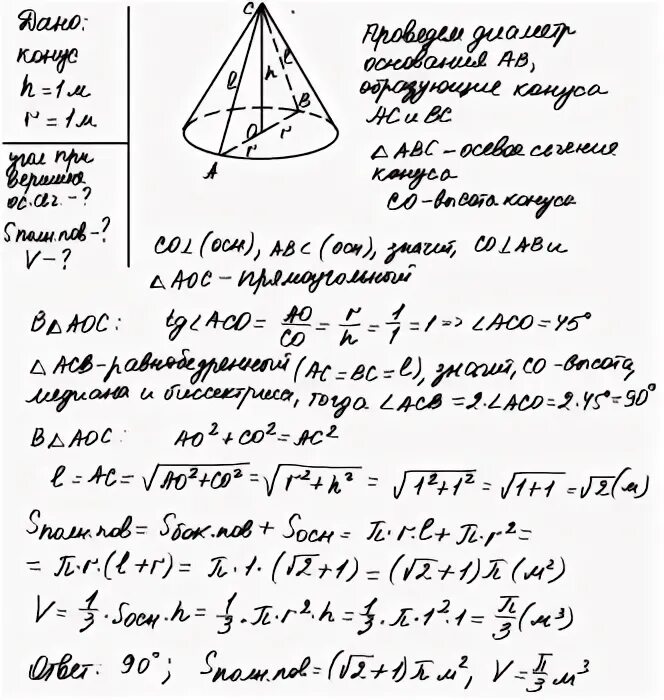 Дано:
конус
h = 1 м
r = 1 м
угол при
вершине
ос. сеч. - ?
Sполн.пов - ?
V - ?
C
l
h
l
B
O
r
r
A
Проведем диаметр
основания AB,
образующие конуса
AC и BC
△ABC - осевое сечение
конуса
CO - высота конуса
CO⊥(осн), AB⊂(осн), значит, CO⊥AB и
△AOC - прямоугольный
В △AOC: tg∠ACO = AO/CO = r/h = 1/1 = 1 => ∠ACO = 45°
△ACB - равнобедренный (AC = BC = l), значит, CO - высота,
медиана и биссектриса, тогда ∠ACB = 2·∠ACO = 2·45° = 90°
В △AOC: AO² + CO² = AC²
l = AC = √(AO² + CO²) = √(r² + h²) = √(1² + 1²) = √(1+1) = √2 (м)
Sполн.пов = Sбок.пов + Sосн = π·r·l + π·r² =
= π·r·(l + r) = π·1·(√2 + 1) = (√2 + 1)π (м²)
V = 1/3·Sосн·h = 1/3·π·r²·h = 1/3·π·1²·1 = π/3 (м³)
Ответ: 90°; Sполн.пов = (√2 + 1)π м², V = π/3 м³